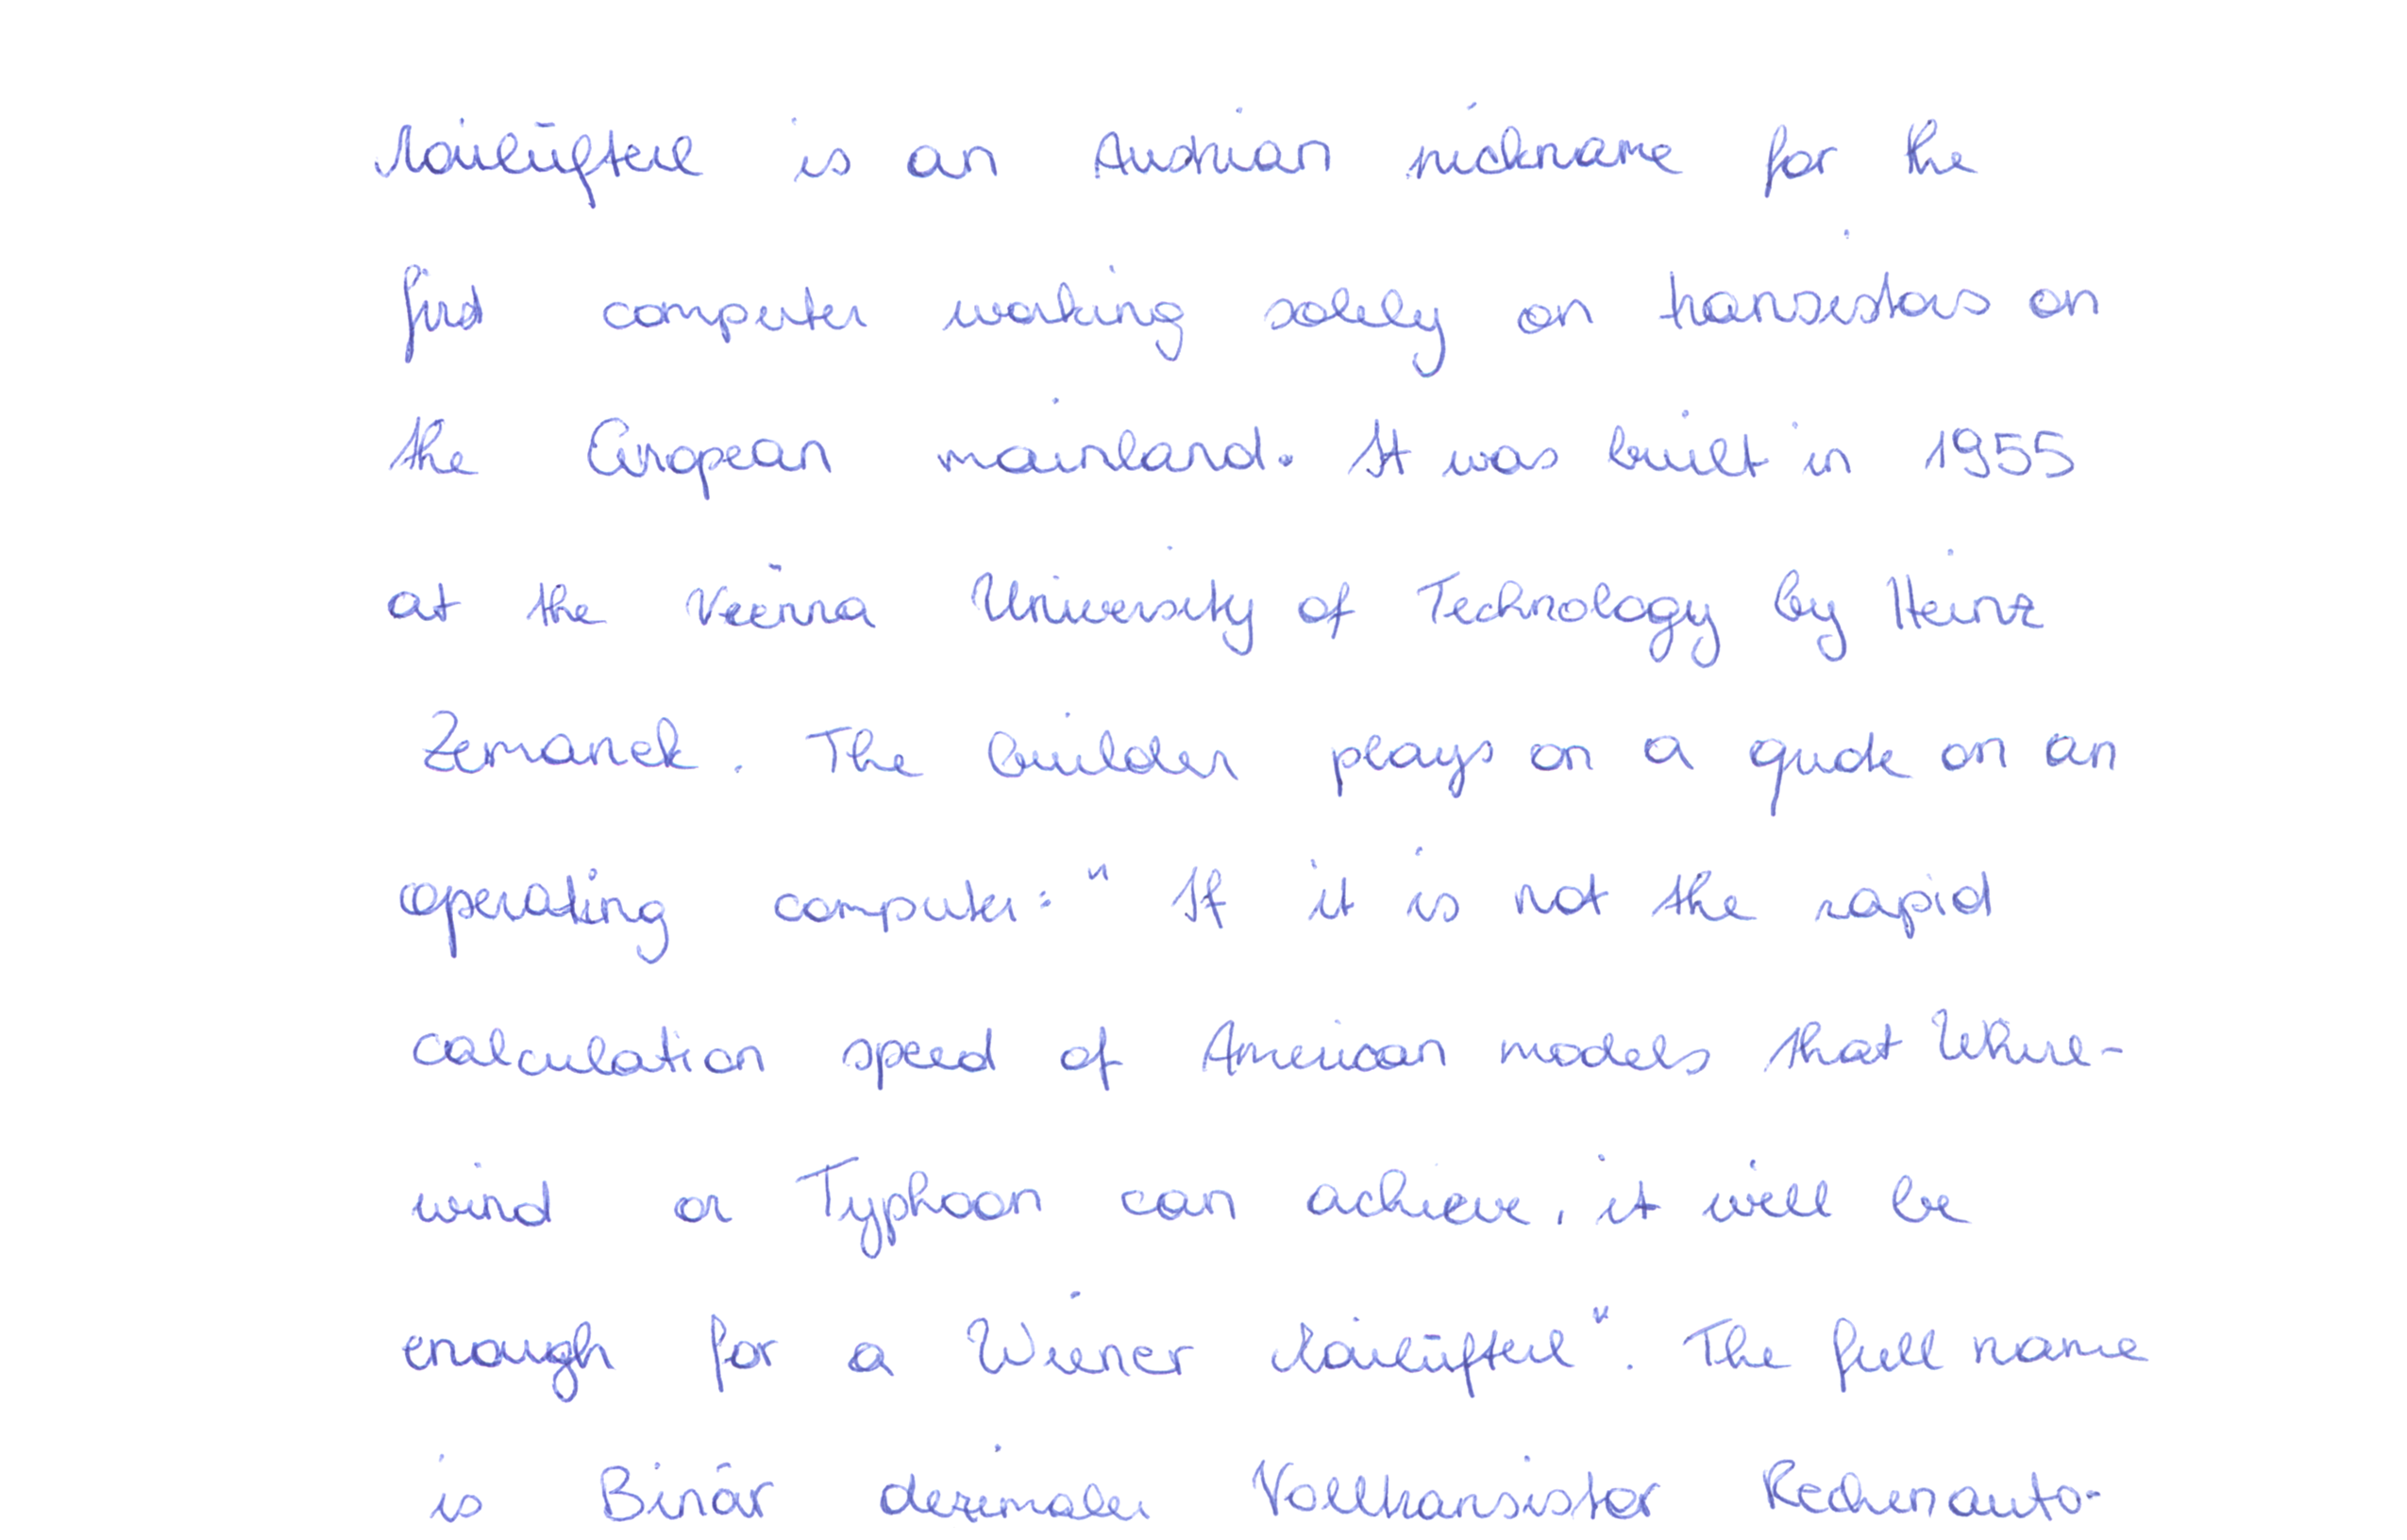 Mailüfterl is an Austrian nickname for the
first computer working solely on transistors on
the European mainland. It was built in 1955
at the Vienna University of Technology by Heinz
Zemanek. The builder plays on a quote on an
operating computer: "If it is not the rapid
calculation speed of American models that Whirl-
wind or Typhoon can achieve, it will be
enough for a Wiener Mailüfterl". The full name
is Binär dezimaler Volltransistor Rechenauto-